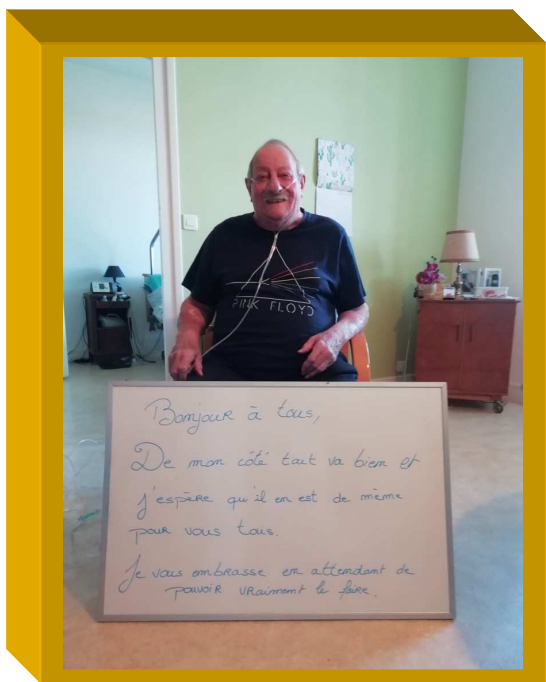 PINK FLOYD
Bonjour à tous,
De mon côté tout va bien et
j'espère qu'il en est de même
pour vous tous.
Je vous embrasse en attendant de
pouvoir vraiment le faire.